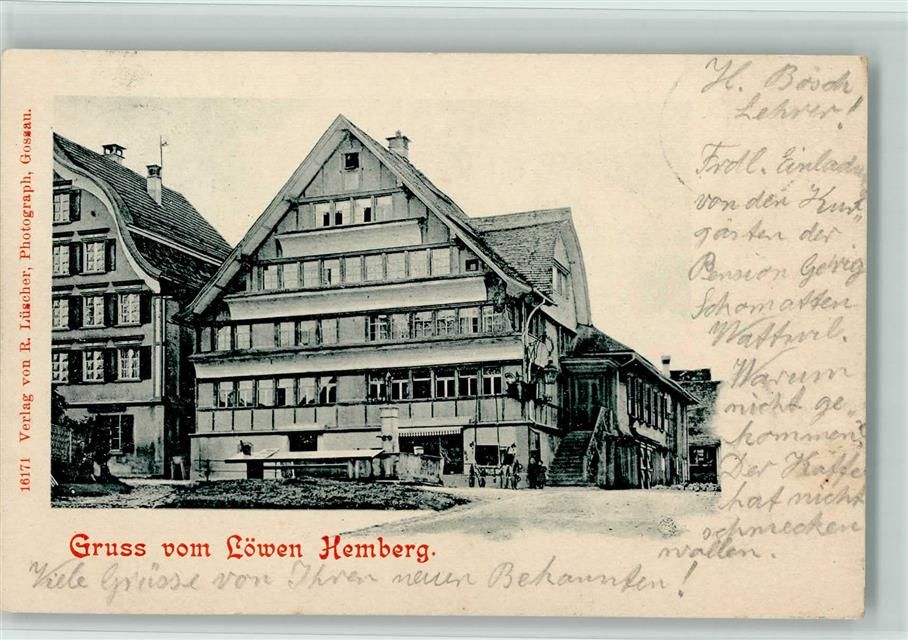 16171 Verlag von R. Lüscher, Photograph, Gossau.
H. Bösch
Lehrer!
Frdl. Einladu
von den Kur-
gästen der
Pension
Wattwil.
Warum
nicht ge-
kommen?
Der Kaffe
hat nicht
schmecken
wollen.
Gruss vom Löwen Hemberg.
Viele Grüsse von Ihren neuen Bekannten!